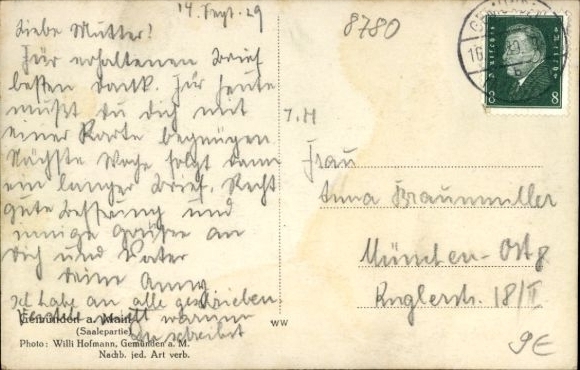 14. Sept. 29
8780
Liebe Mutter!
Für erhaltenen Brief
besten Dank. Für heute
mußt du dich mit
einer Karte begnügen
Nächste Woche folgt dann
ein langer Brief. Recht
gute Besserung und
innige Grüße an
dich und Vater
deine Anny
Ich habe an alle geschrieben
nicht warum
schreibst
Gemünden a. Main
(Saalepartie)
Photo: Willi Hofmann, Gemünden a. M.
Nachb. jed. Art verb.
WW
GEMÜNDEN
16
8 8
Frau
Anna Braunmüller
München-Ost 8
18/II
9E